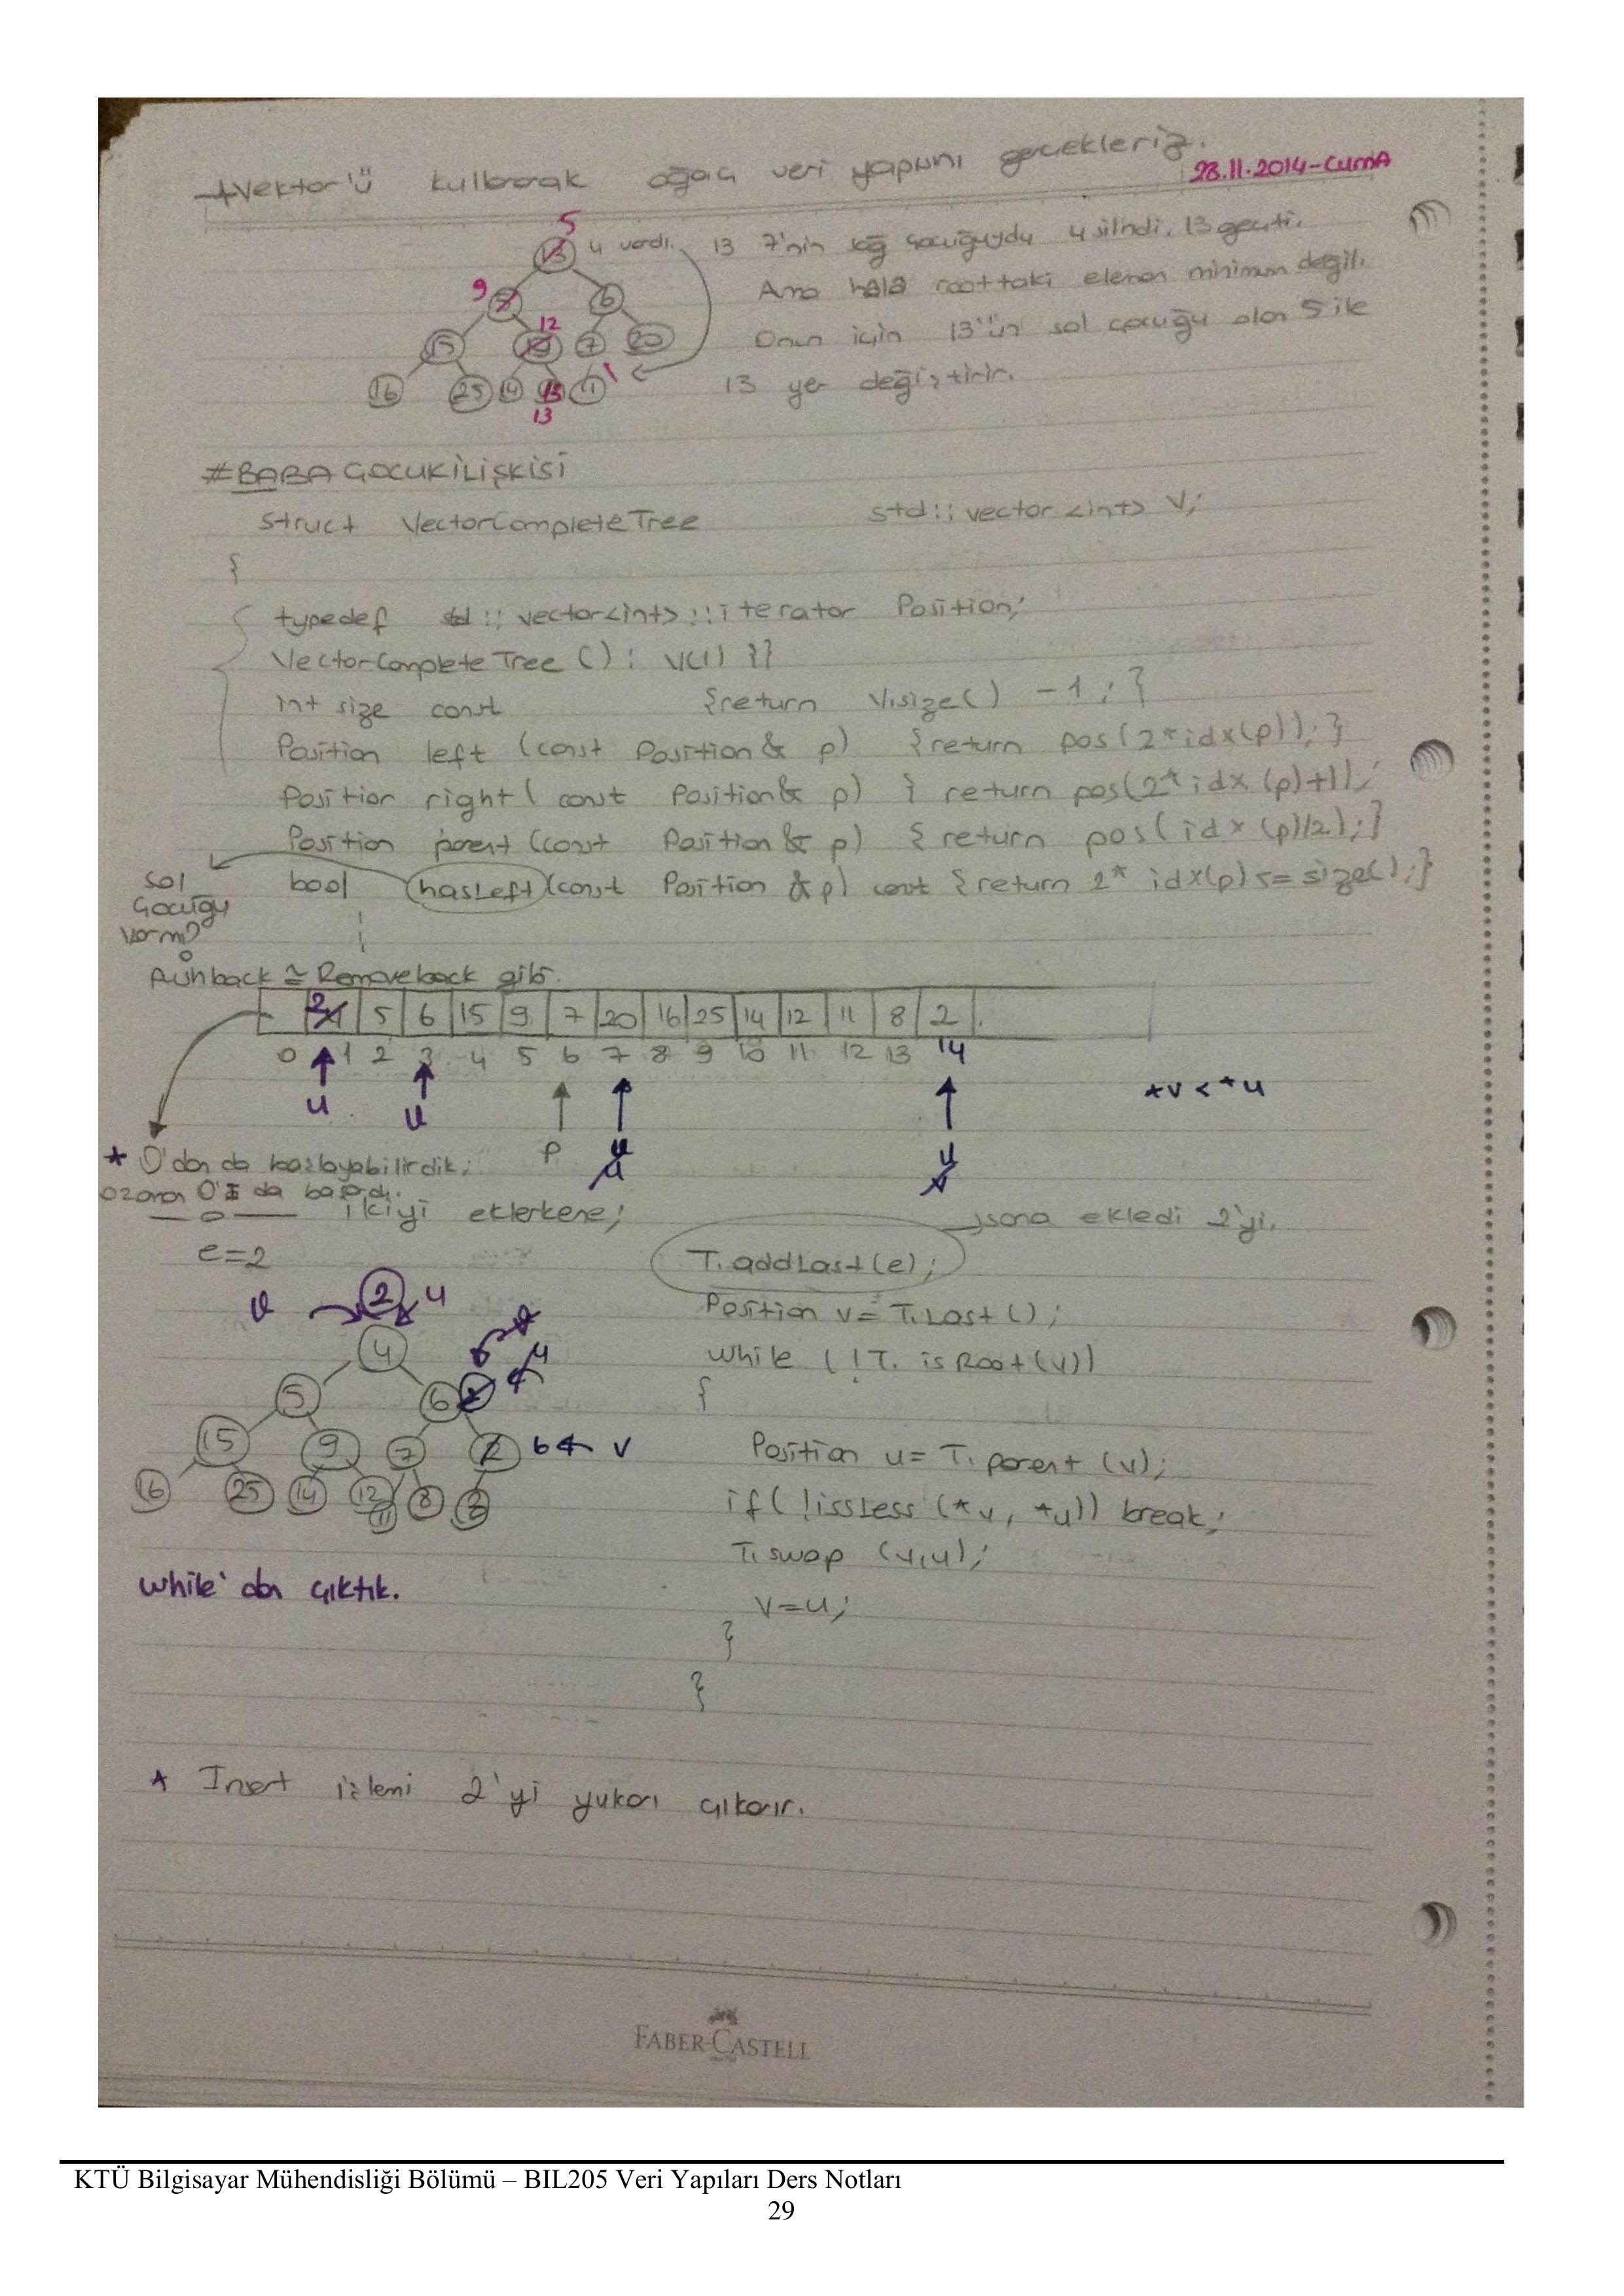 Vektor'ü kullanarak ağacı veri yapısını gerçekleriz.
28.11.2014-CUMA
5
13 4 vardı. 13 7'nin sağ çocuğuydu 4 silindi, 13 geçti.
9 5 6 Ama hala roottaki eleman minimum değil.
12
15 7 20 Onun için 13'ün sol çocuğu olan 5 ile
16 25 14 11 13 yer değiştirir.
13
#BABA ÇOCUK İLİŞKİSİ
struct VectorCompleteTree std::vector<int> V;
{
typedef std::vector<int>::iterator Position;
VectorCompleteTree() : V(1) {}
int size const {return V.size() -1; }
Position left (const Position& p) {return pos(2*idx(p)); }
Position right( const Position& p) { return pos(2* idx (p)+1);
Position parent (const Position& p) { return pos( idx (p)/2); }
bool hasLeft(const Position &p) const {return 2* idx(p) <= size(); }
sol
çocuğu
var mı?
Pushback ≃ Removeback gibi.
2 4 5 6 15 9 7 20 16 25 14 12 11 8 2
0 1 2 3 4 5 6 7 8 9 10 11 12 13 14
u u p u u v *v < *u
* 0'dan da başlayabilirdik.
o zaman 0'ı da basardı.
ikiyi eklerkene; sona ekledi 2'yi.
e=2 T.addLast(e);
v 2 u Position v= T.Last();
4 while (!T. isRoot(v))
5 6 2 u {
15 9 7 2 6 ← v Position u= T. parent (v);
16 25 14 12 11 8 if( !issLess (*v, *u)) break;
T.swap (v,u);
while'dan çıktık.
v=u;
}
}
* Insert işlemi 2'yi yukarı çıkarır.
FABER-CASTELL
KTÜ Bilgisayar Mühendisliği Bölümü – BIL205 Veri Yapıları Ders Notları
29